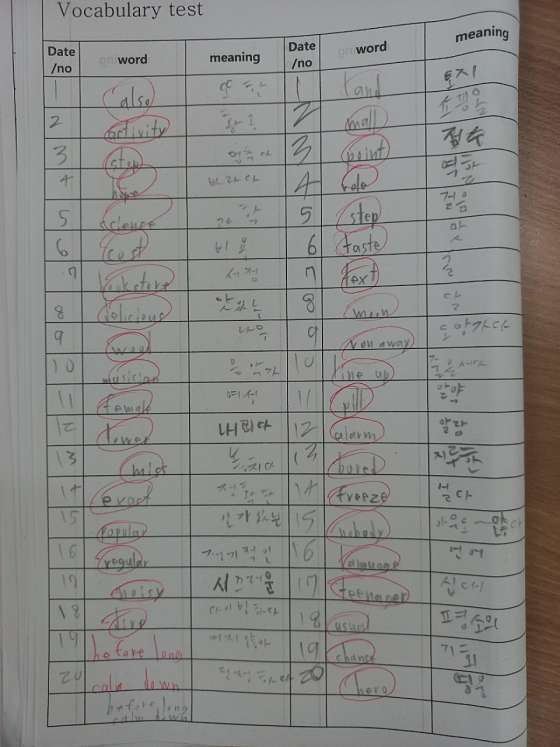 Vocabulary test
Date /no word meaning Date /no word meaning
1 also 또한 1 land 토지
2 activity 활동 2 mall 쇼핑몰
3 stop 멈추다 3 point 점수
4 hope 바라다 4 role 역할
5 science 과학 5 step 걸음
6 cost 비용 6 taste 맛
7 bookstore 서점 7 text 글
8 delicious 맛있는 8 moon 달
9 wood 나무 9 run away 도망가다
10 musician 음악가 10 line up 줄을 서다
11 female 여성 11 pill 알약
12 lower 내리다 12 alarm 알람
13 miss 놓치다 13 bored 지루한
14 exact 정확한 14 freeze 얼다
15 popular 인기있는 15 nobody 아무도 ~않다
16 regular 규칙적인 16 language 언어
17 noisy 시끄러운 17 teenager 십대
18 dive 다이빙하다 18 usual 평상시의
19 before long 머지않아 19 chance 기회
20 calm down 진정하다 20 hero 영웅
before long
calm down